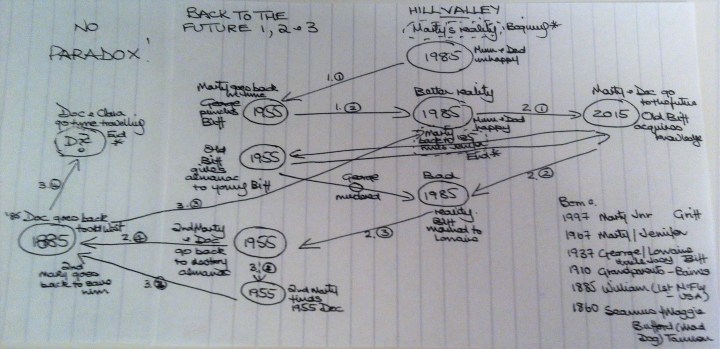 NO
PARADOX!
BACK TO THE
FUTURE 1, 2 & 3
HILL VALLEY
Marty's reality
1985
Mum & Dad
unhappy
Marty goes back
in time
George
punches
Biff
1955
1.①
1.②
Better reality
1985
Mum + Dad
happy
2.①
Marty + Doc go
to the future
2015
Old Biff
acquires
knowledge
Doc & Clara
go time travelling
End
*
Old
Biff
gives
almanac
to young Biff
1955
Marty
back to 85
End *
George
murdered
Bad
1985
reality
Biff
married to
Lorraine
2.②
3.③
'85 Doc goes back
to old West
1885
2nd
Marty goes
back to save
him
2nd Marty
& Doc
go back
to destroy
almanac
1955
2.③
3.①
1955
2nd Marty
finds
1955 Doc
3.②
Born:
1997 Marty Jnr Griff
1967 Marty/Jenifer
1937 George/Lorraine
Biff
1910 Grandparents - Baines
1885 William (1st McFly
- USA)
1860 Seamus/Maggie
Buford (Mad
Dog) Tannen